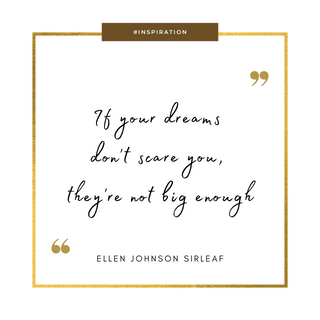 #INSPIRATION
”
If your dreams
don't scare you,
they're not big enough
“
ELLEN JOHNSON SIRLEAF